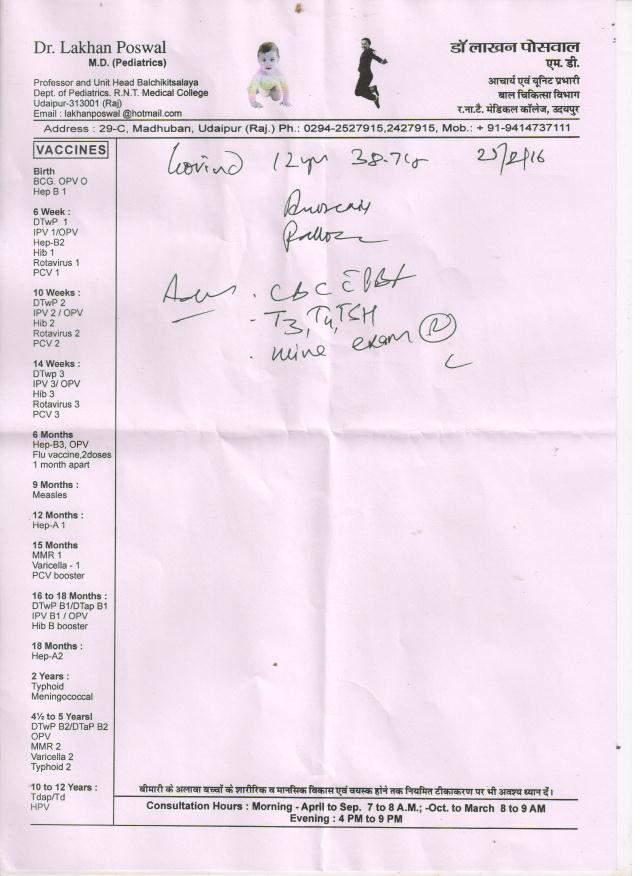 Dr. Lakhan Poswal
M.D. (Pediatrics)
Professor and Unit Head Balchikitsalaya
Dept. of Pediatrics. R.N.T. Medical College
Udaipur-313001 (Raj)
Email : lakhanposwal @hotmail.com
डॉ लाखन पोसवाल
एम. डी.
आचार्य एवं यूनिट प्रभारी
बाल चिकित्सा विभाग
र.ना.टै. मेडिकल कॉलेज, उदयपुर
Address : 29-C, Madhuban, Udaipur (Raj.) Ph.: 0294-2527915,2427915, Mob.: + 91-9414737111
VACCINES
Birth
BCG. OPV O
Hep B 1
6 Week :
DTwP 1
IPV 1/OPV
Hep-B2
Hib 1
Rotavirus 1
PCV 1
10 Weeks :
DTwP 2
IPV 2 / OPV
Hib 2
Rotavirus 2
PCV 2
14 Weeks :
DTwp 3
IPV 3/ OPV
Hib 3
Rotavirus 3
PCV 3
6 Months
Hep-B3, OPV
Flu vaccine,2doses
1 month apart
9 Months :
Measles
12 Months :
Hep-A 1
15 Months
MMR 1
Varicella - 1
PCV booster
16 to 18 Months :
DTwP B1/DTap B1
IPV B1 / OPV
Hib B booster
18 Months :
Hep-A2
2 Years :
Typhoid
Meningococcal
4½ to 5 Yearsl
DTwP B2/DTaP B2
OPV
MMR 2
Varicella 2
Typhoid 2
10 to 12 Years :
Tdap/Td
HPV
Govind 12yr 38.7kg
. CBC
- T3, T4, TSH
. urine exam (R)
बीमारी के अलावा बच्चों के शारीरिक व मानसिक विकास एवं वयस्क होने तक नियमित टीकाकरण पर भी अवश्य ध्यान दें।
Consultation Hours : Morning - April to Sep. 7 to 8 A.M.; -Oct. to March 8 to 9 AM
Evening : 4 PM to 9 PM